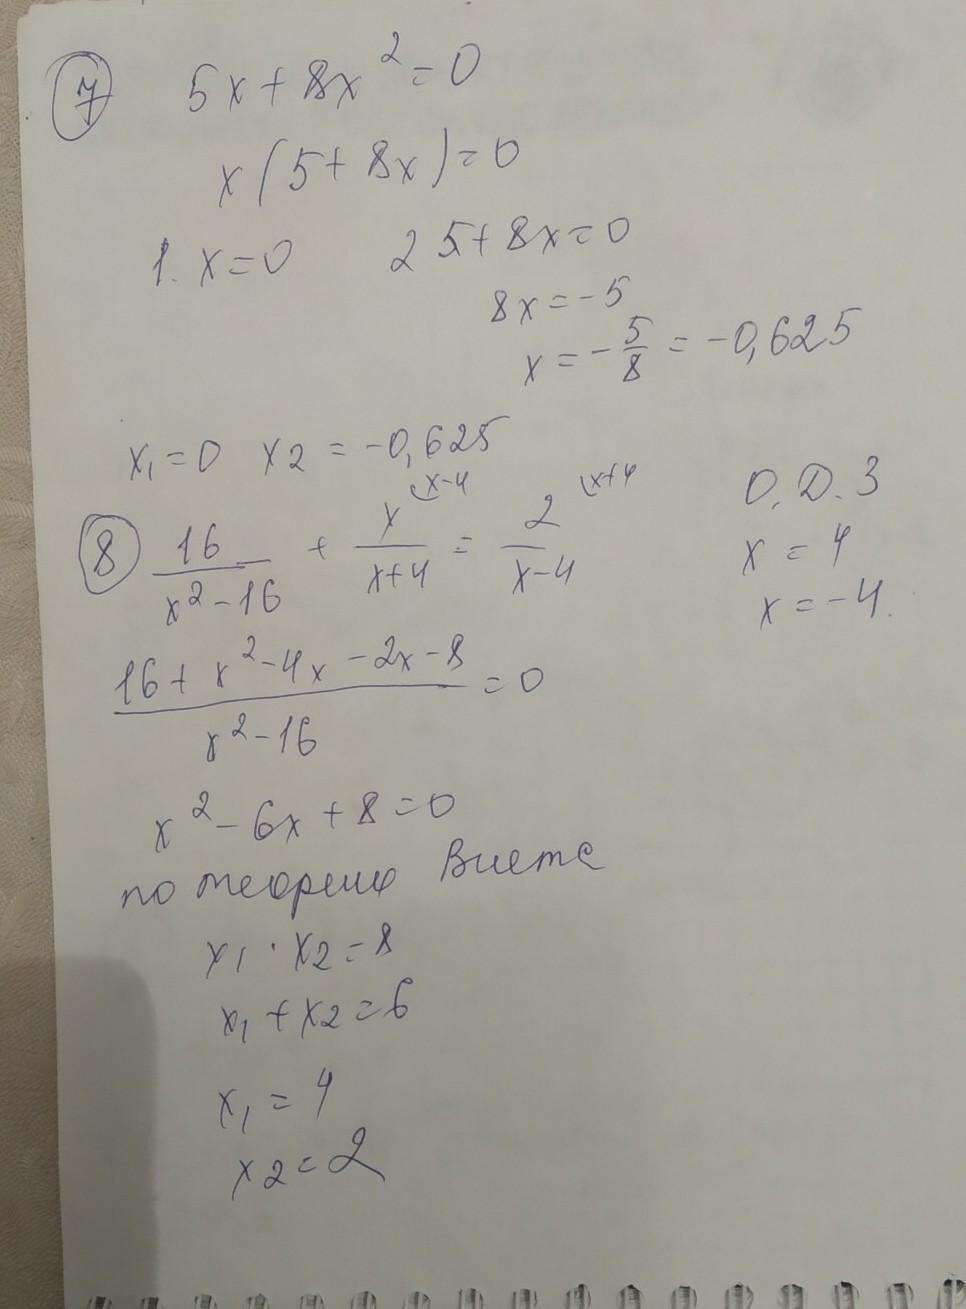 7 5x+8x²=0
x(5+8x)=0
1. x=0 2 5+8x=0
8x=-5
x=-5/8=-0,625
x₁=0 x2=-0,625
8 16/(x²-16) + x^(x-4)/(x+4) = 2^(x+4)/(x-4)
О.D.З
x=4
x=-4.
(16+x²-4x-2x-8)/(x²-16)=0
x²-6x+8=0
по теореме Виета
x₁·x2=8
x₁+x2=6
x₁=4
x2=2